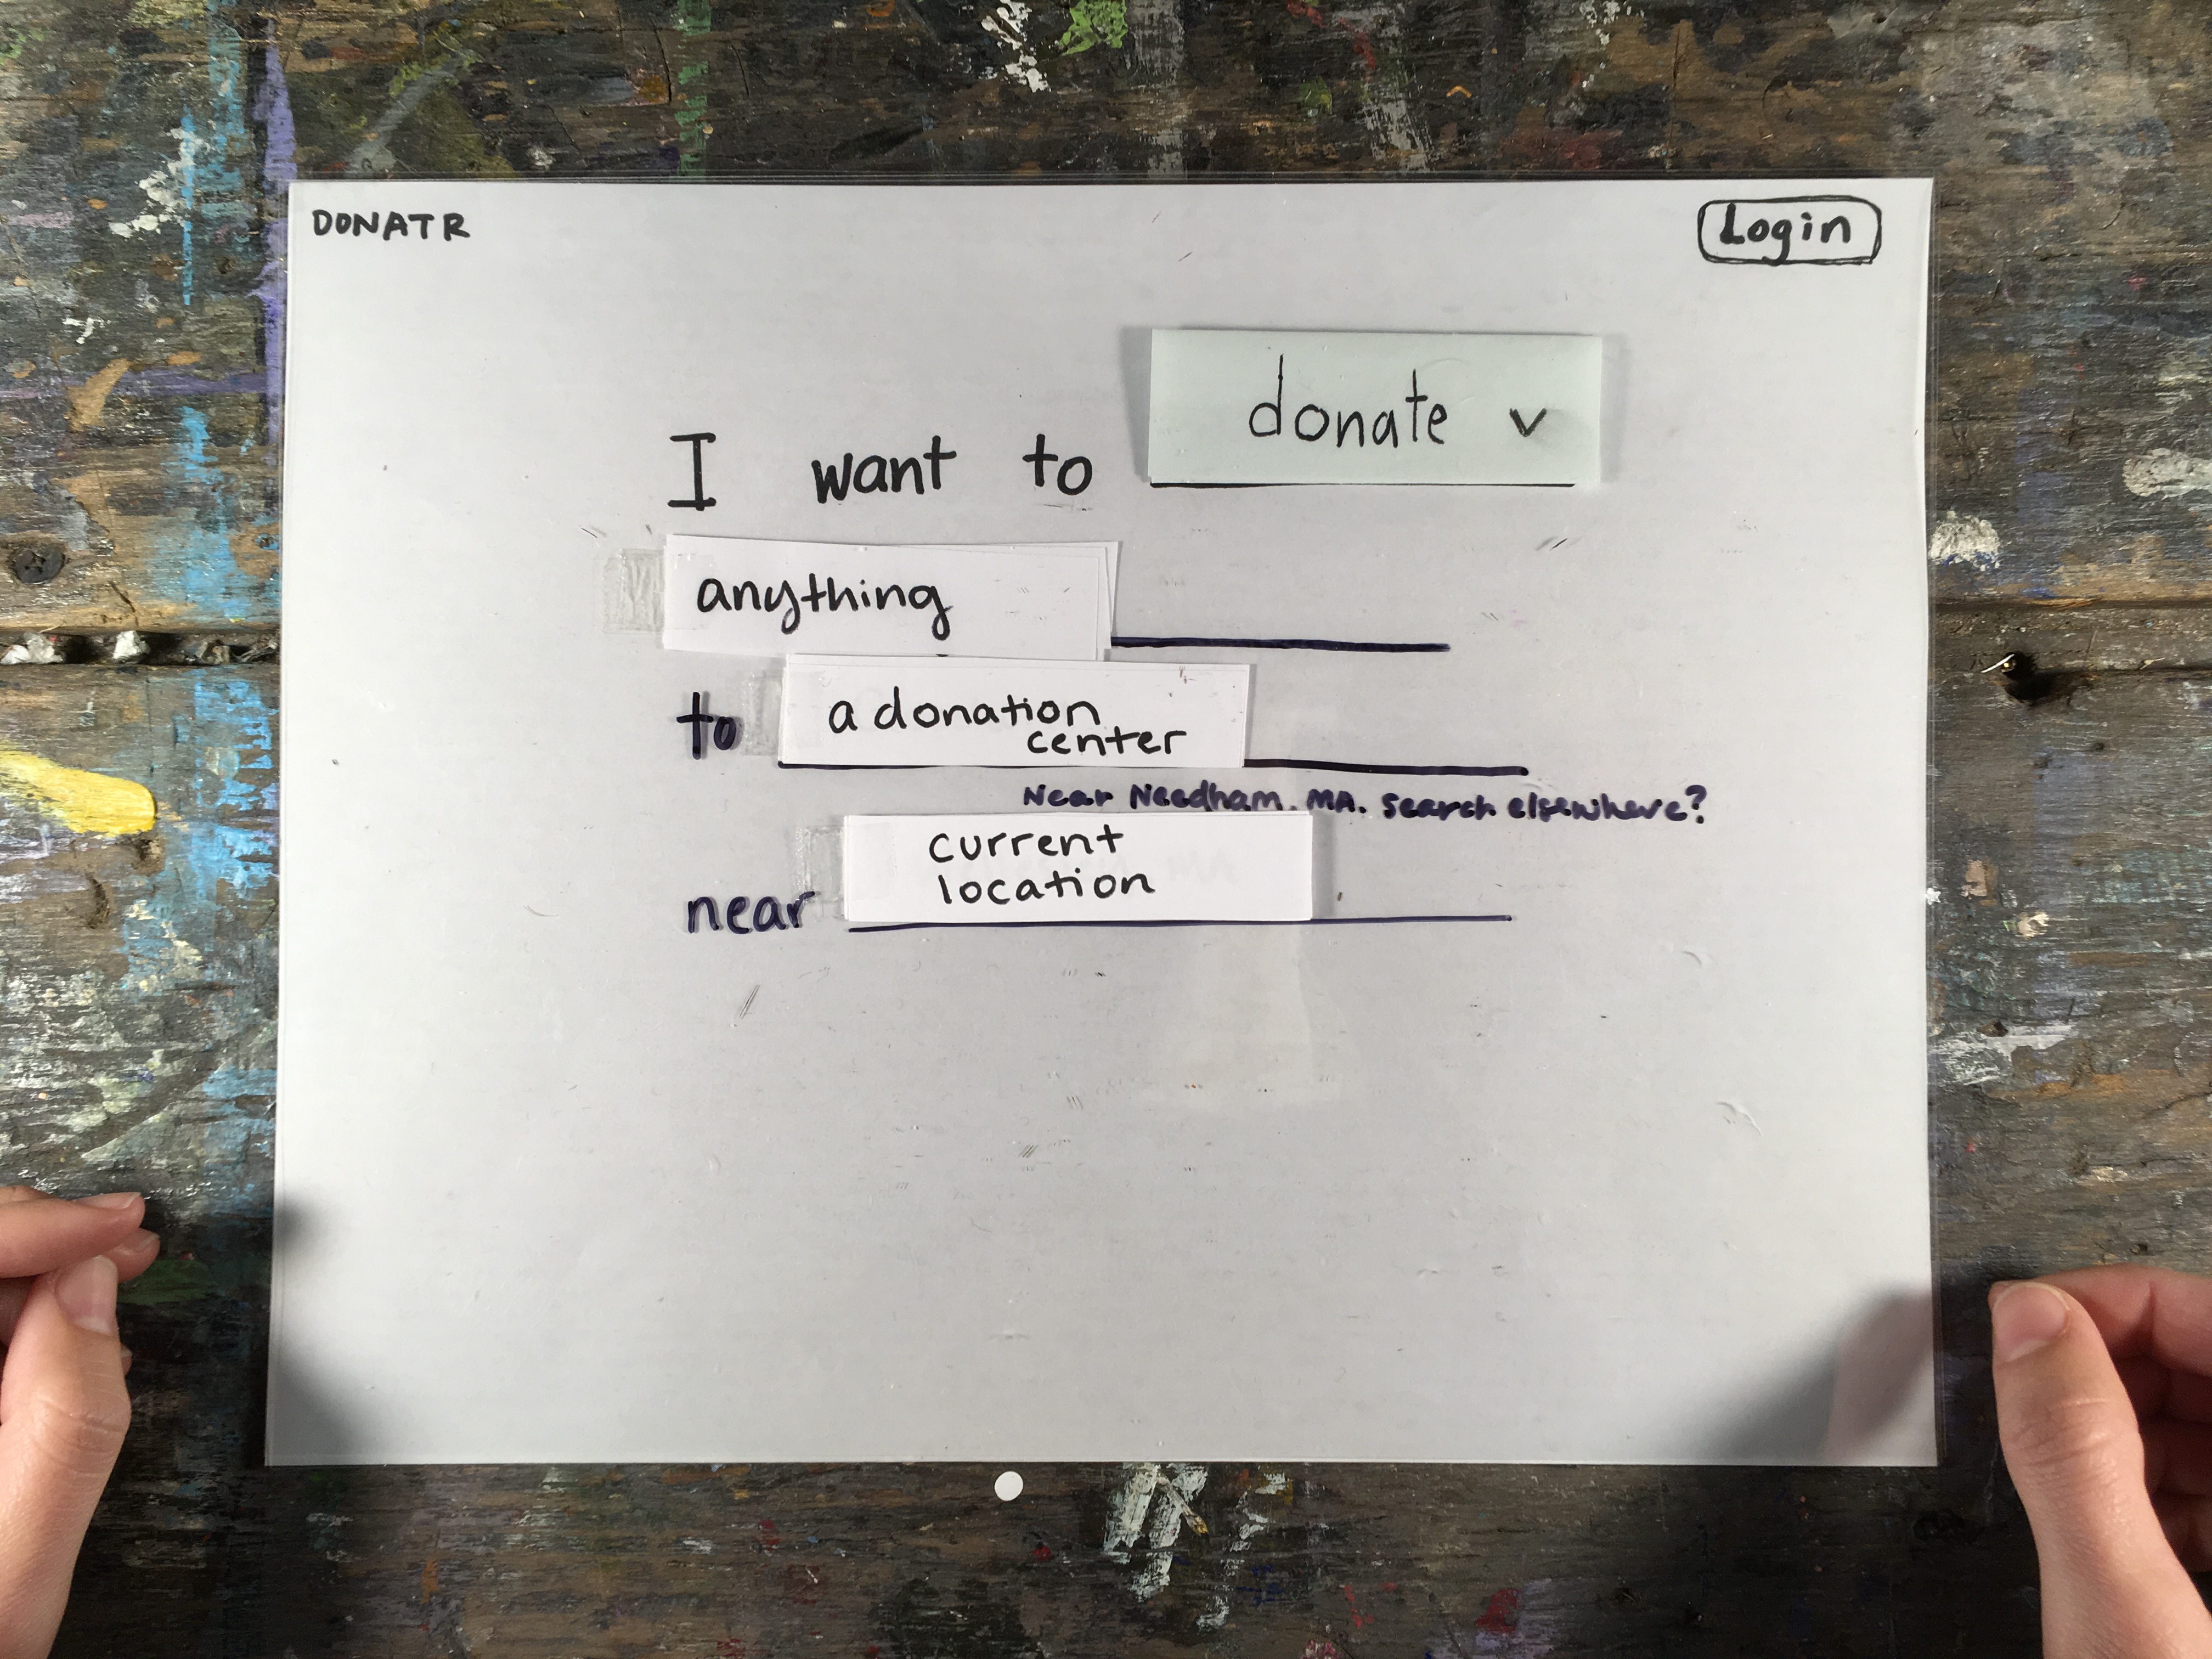 DONATR
Login
I want to donate v
anything
to a donation
center
Near Needham, MA. Search elsewhere?
current
near location